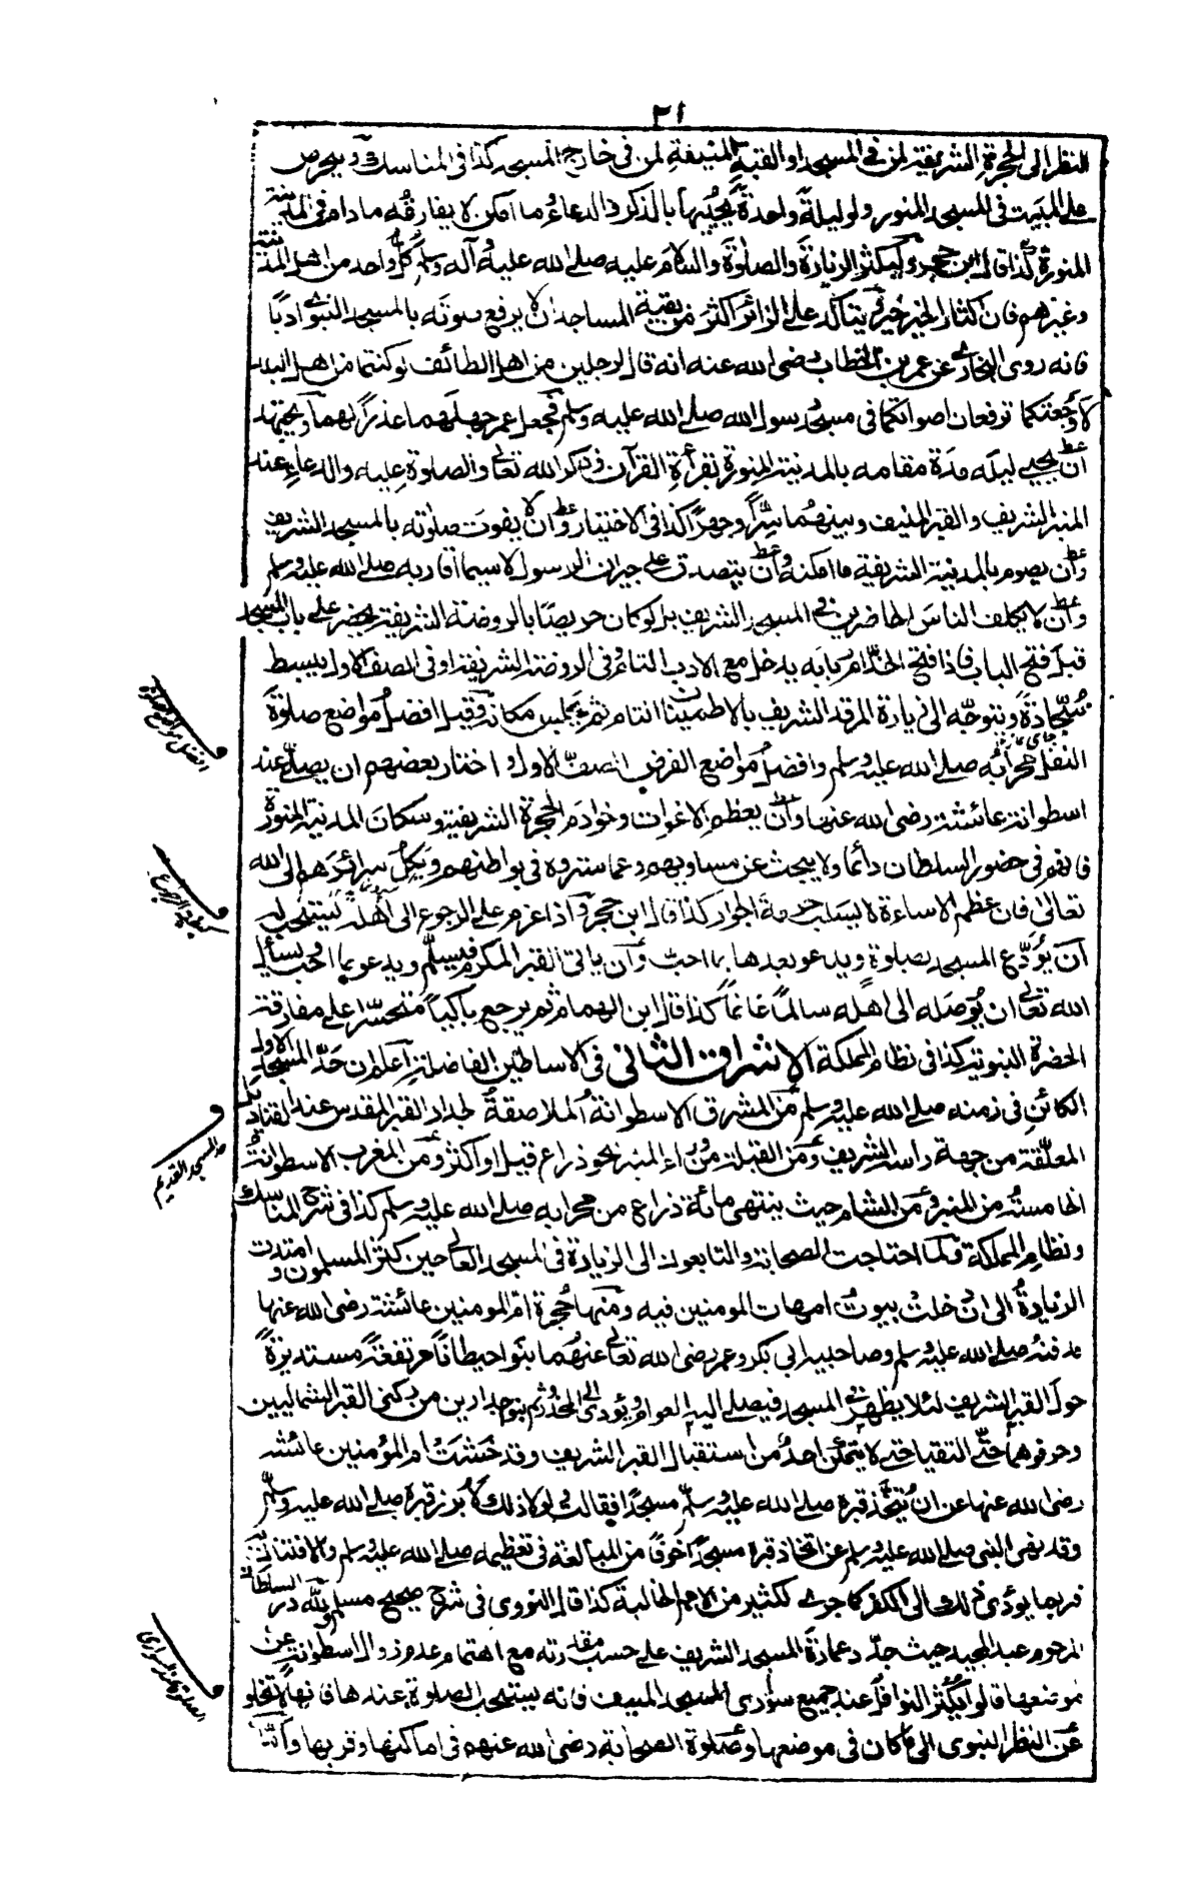 ٢١
النظر الى الحجرة الشريفة لمن في المسجد او القبة المنيفة لمن في خارج المسجد كذا في المناسك و يحرص
على المبيت في المسجد المنور ولو ليلة واحدة يحييها بالذكر والدعاء ما امكن لا يفارقه ما دام في المدينة
المنورة كذا قال ابن حجر وليكثر الزيارة والصلوة والسلام عليه صلى الله عليه وآله وسلم كل واحد من اهل المدينة
وغيرهم فان اكثار الخير خير ويتاكد على الزائر اكثر من بقية المساجد ان لا يرفع صوته بالمسجد النبوي ادبا
فانه روى البخاري عن عمر بن الخطاب رضى الله عنه انه قال لرجلين من اهل الطائف لو كنتما من اهل البلد
لاوجعتكما ترفعان اصواتكما في مسجد رسول الله صلى الله عليه وسلم فجعل عمر جهلهما عذرا لهما ويجتهد
ان يحيي ليله مدة مقامه بالمدينة المنورة بقراءة القرآن وذكر الله تعالى والصلوة عليه والدعاء عند
المنبر الشريف والقبر المنيف وبينهما سرا وجهرا كذا في الاختيار وان لا يفوت صلوته بالمسجد الشريف
وان يصوم بالمدينة الشريفة ما امكنه وان يتصدق على جيران الرسول لا سيما اقاربه صلى الله عليه وسلم
وان لا يكلف الناس الحاضرين في المسجد الشريف بل لو كان حريصا بالروضة الشريفة يحضر على باب المسجد
قبل فتح الباب فاذا فتح الخدام بابه يدخل مع الادب التام في الروضة الشريفة او في الصف الاول يبسط
سجادة ويتوجه الى زيارة المرقد الشريف بالاطمينان التام ثم يجلس مكانه وقيل افضل مواضع صلوة
النفل محرابه صلى الله عليه وسلم وافضل مواضع الفرض الصف الاول واختار بعضهم ان يصلى عند
اسطوانة عائشة رضى الله عنها وان يعظم الاغوات وخوادم الحجرة الشريفة وسكان المدينة المنورة
فانهم في حضور السلطان دائما ولا يبحث عن مساويهم وعما ستروه في بواطنهم ويكل سرائرهم الى الله
تعالى فان عظم الاساءة لا يسلب حرمة الجوار كذا قال ابن حجر واذا عزم على الرجوع الى اهله يستحب له
ان يودع المسجد بصلوة ويدعو بعدها بما احب وان ياتى القبر المكرم فيسلم ويدعو بما احب ويسأل
الله تعالى ان يوصله الى اهله سالما غانما كذا قال ابن الهمام ثم يرجع باكيا متحسرا على مفارقة
الحضرة النبوية كذا في نظام المملكة الاشراق الثاني في الاساطين الفاضلة اعلم ان حد المسجد الاول
الكائن في زمنه صلى الله عليه وسلم من المشرق الاسطوانة الملاصقة لجدار القبر المقدس عند القناديل
المعلقة من جهة راسه الشريف ومن القبلة من وراء المنبر نحو ذراع قيل او اكثر ومن المغرب الاسطوانة
الخامسة من المنبر ومن الشام حيث ينتهي مائة ذراع من محرابه صلى الله عليه وسلم كذا في شرح المناسك
ونظام المملكة ولما احتاجت الصحابة والتابعون الى الزيادة في المسجد العالي حين كثر المسلمون وامتدت
الزيادة الى ان دخلت بيوت امهات المومنين فيه ومنها حجرة ام المومنين عائشة رضى الله عنها
مدفنه صلى الله عليه وسلم وصاحبيه ابى بكر وعمر رضى الله تعالى عنهما بنوا حيطانا مرتفعة مستديرة
حول القبر الشريف لئلا يظهر في المسجد فيصلى اليه العوام ويؤدي الى المحذور ثم بنوا جدارين من ركنى القبر الشماليين
وحرفوهما حتى التقيا حتى لا يتمكن احد من استقبال القبر الشريف وقد خشيت ام المؤمنين عائشة
رضى الله عنها عن ان يتخذ قبره صلى الله عليه وسلم مسجدا فقالت لولا ذلك لابرز قبره صلى الله عليه وسلم
وقد نهى النبى صلى الله عليه وسلم عن اتخاذ قبره مسجدا خوفا من المبالغة في تعظيمه صلى الله عليه وسلم والافتتان به
فربما يؤدى ذلك الى الكفر كما جرى لكثير من الامم الخالية كذا قال النووى في شرح صحيح مسلم ولله در السلطان
المرحوم عبد المجيد حيث جدد عمارة المسجد الشريف على حسب مقدرته مع اهتمام عدم زوال اسطوانة عن
موضعها قالوا يكثر النوافل عند جميع سوارى المسجد المنيف فانه يستحب الصلوة عندها فانها لا تخلو
عن النظر النبوى الى ما كان في موضعها وصلوة الصحابة رضى الله عنهم في اماكنها وقربها وانها
افضل مواضع الصلوة
حد المسجد القديم
الصلوة عند السوارى